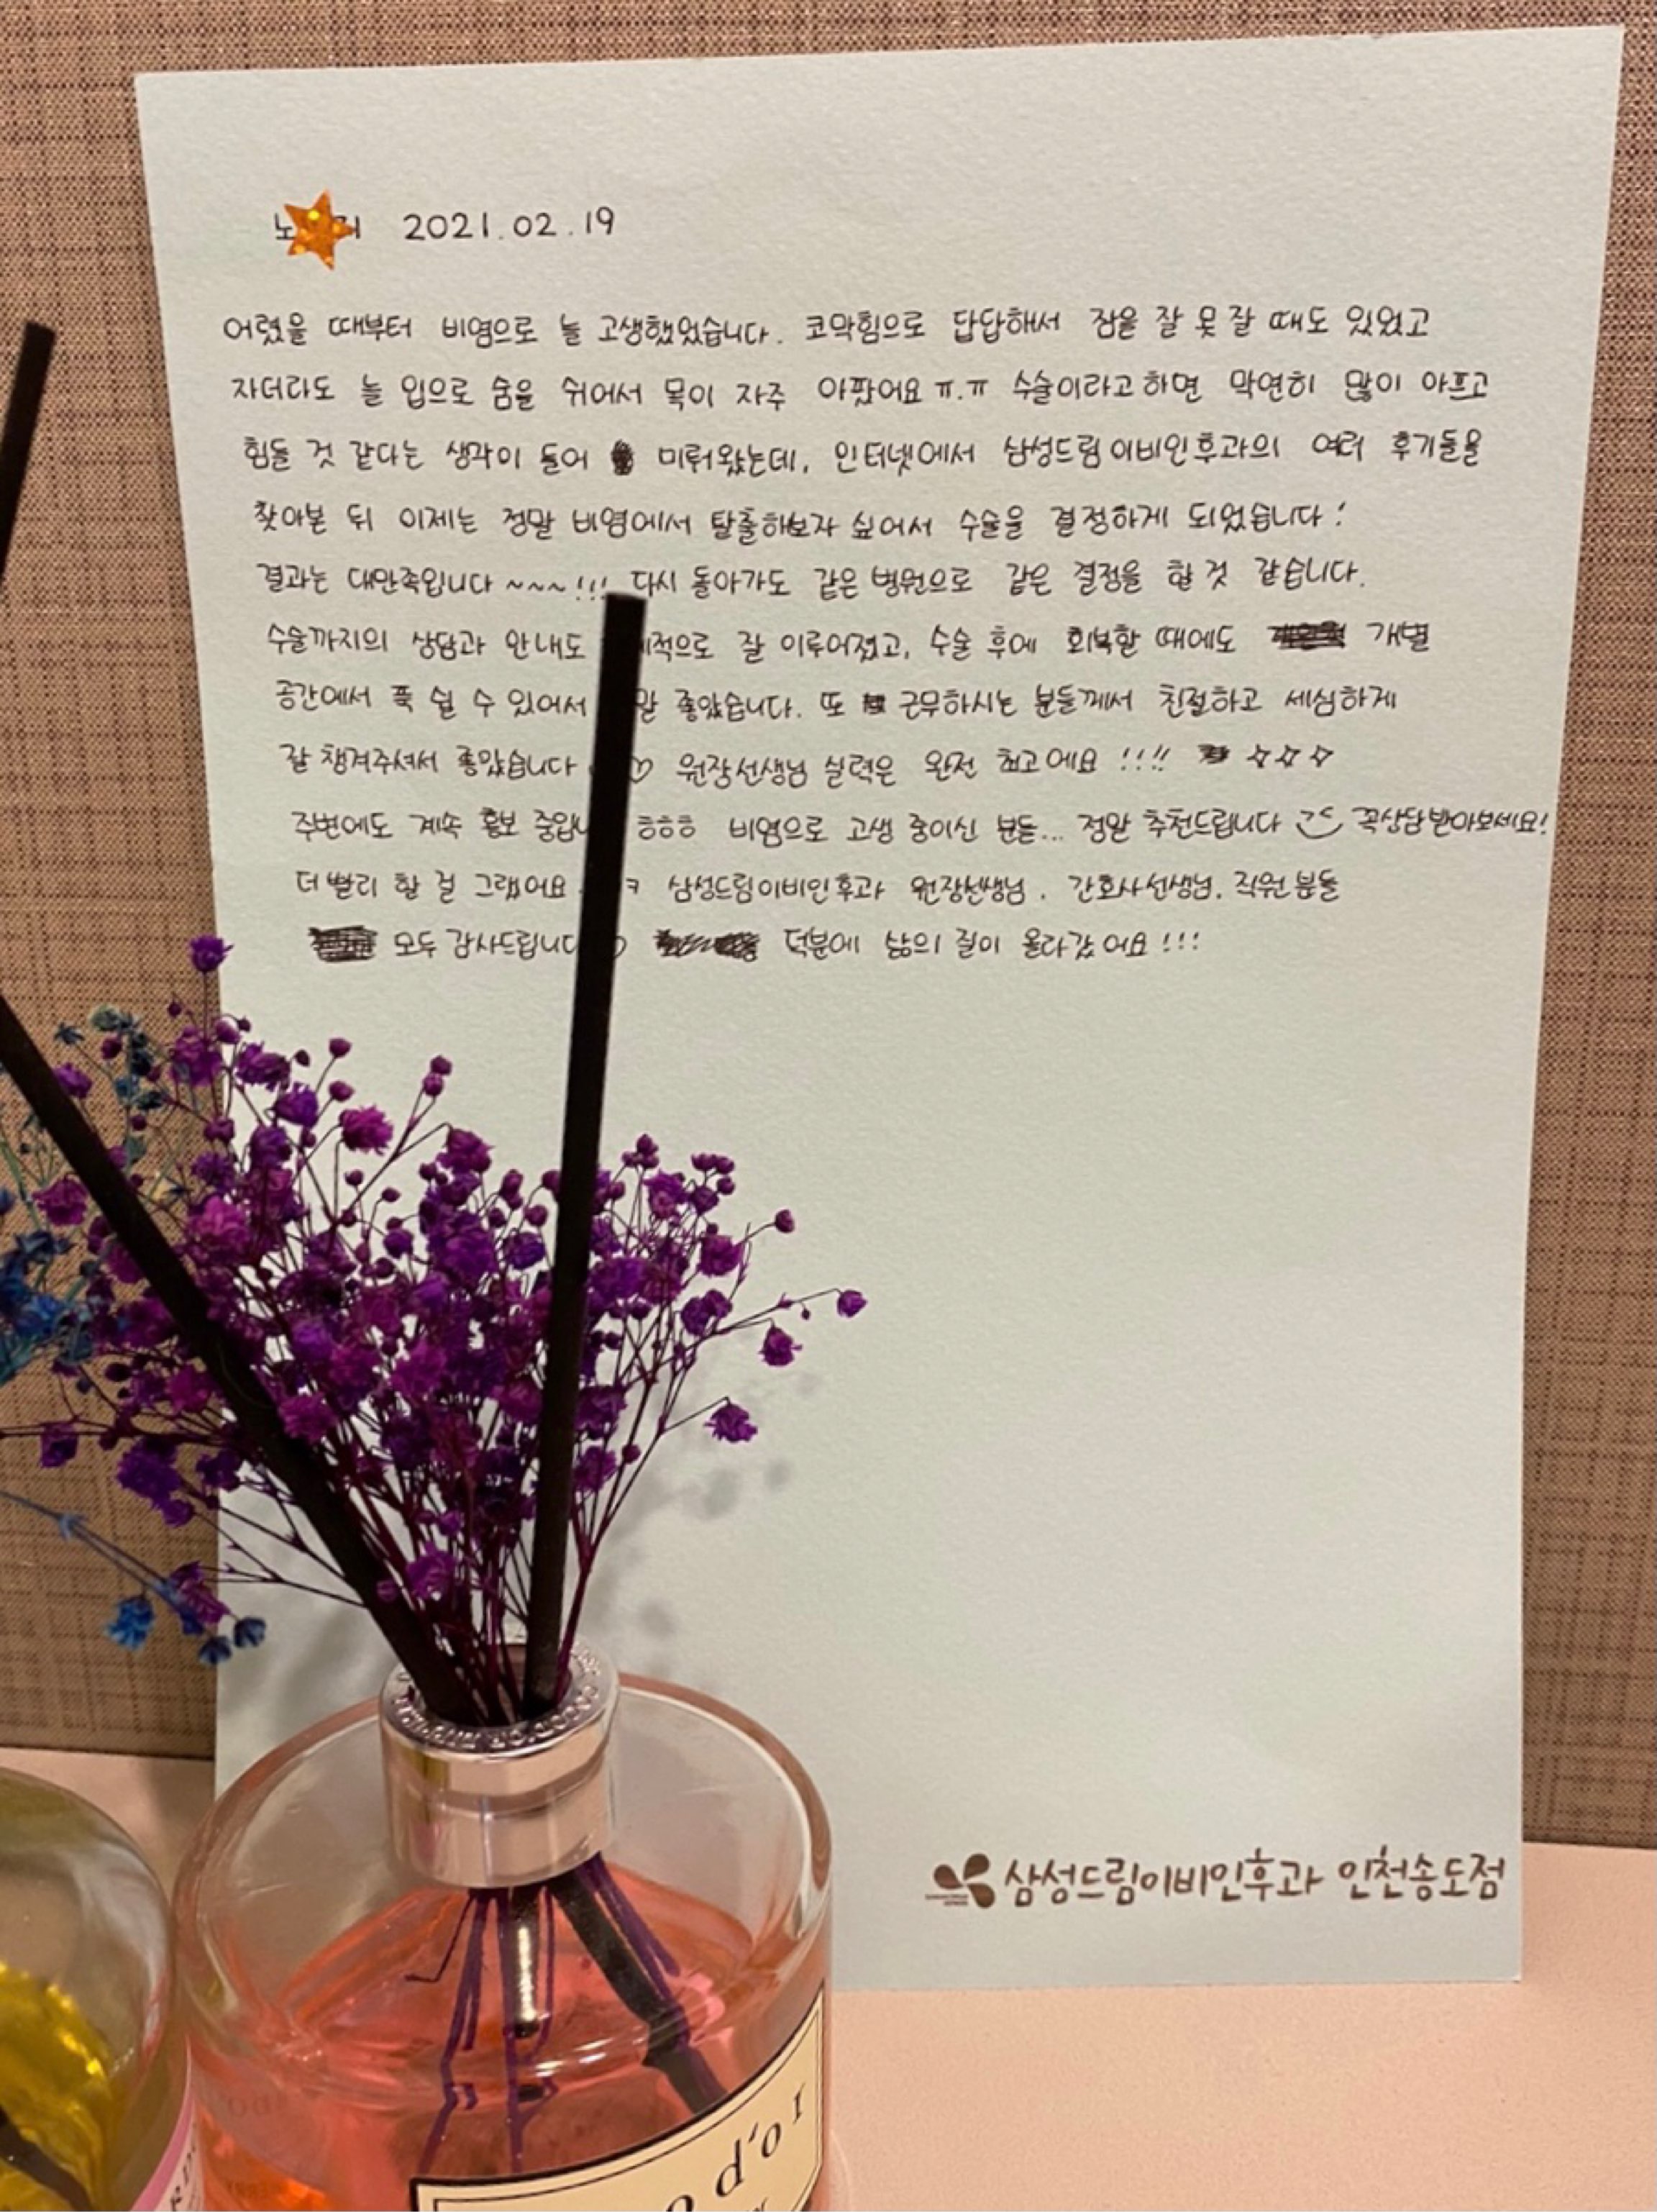 2021.02.19
어렸을 때부터 비염으로 늘 고생했었습니다. 코막힘으로 답답해서 잠을 잘 못 잘 때도 있었고
자더라도 늘 입으로 숨을 쉬어서 목이 자주 아팠어요 ㅠ.ㅠ 수술이라고 하면 막연히 많이 아프고
힘들 것 같다는 생각이 들어 미뤄왔는데, 인터넷에서 삼성드림이비인후과의 여러 후기들을
찾아본 뒤 이제는 정말 비염에서 탈출해보자 싶어서 수술을 결정하게 되었습니다!
결과는 대만족입니다 ~~~!!! 다시 돌아가도 같은 병원으로 같은 결정을 할 것 같습니다.
수술까지의 상담과 안내도 잘 이루어졌고, 수술 후에 회복할 때에도 개별
공간에서 푹 쉴 수 있어서 좋았습니다. 또 근무하시는 분들께서 친절하고 세심하게
잘 챙겨주셔서 좋았습니다 ♡ 원장선생님 실력은 완전 최고에요 !!!! ☆☆☆
주변에도 계속 홍보 ㅎㅎㅎ 비염으로 고생 중이신 분들... 정말 추천드립니다 꼭 상담받아보세요!
더 빨리 할 걸 그랬어요 삼성드림이비인후과 원장선생님. 간호사선생님. 직원분들
모두 감사드립니다 덕분에 삶의 질이 올라갔어요!!!
삼성드림이비인후과 인천송도점
d'or